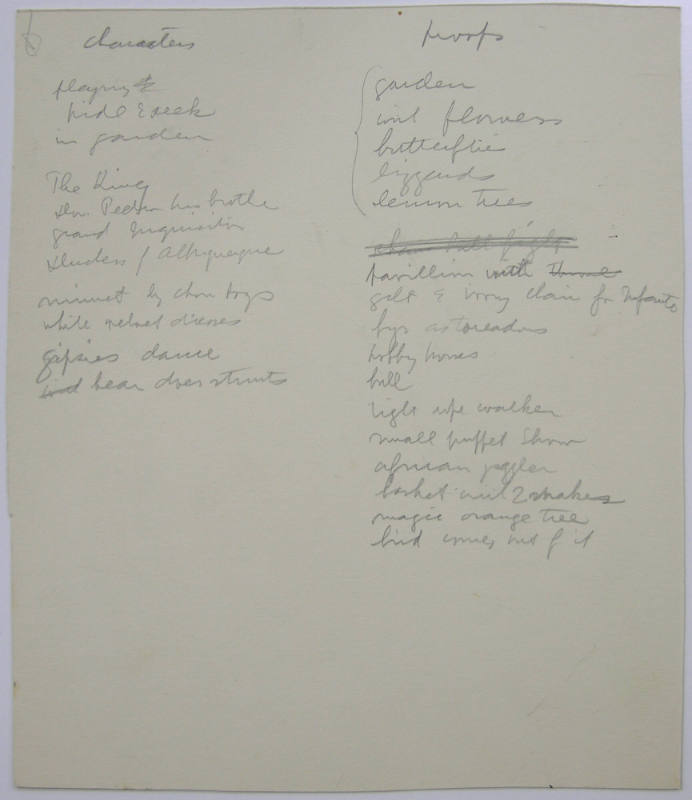 characters
playing
hide & seek
in garden
The King
Don Pedro his brothe
grand Inquisitor
Duchess / Albuquerque
minuet by choir boys
white velvet dresses
gipsies dance
bear does stunts
proofs
garden
wit flowers
butterflie
lizzards
lemon trees
sham bull fight
pavillion with throne
gilt & ivory chair for Infanta
boys as toreadors
hobby horses
bull
tight rope walker
small puppet show
african juggler
basket with 2 snakes
magic orange tree
bird comes out of it